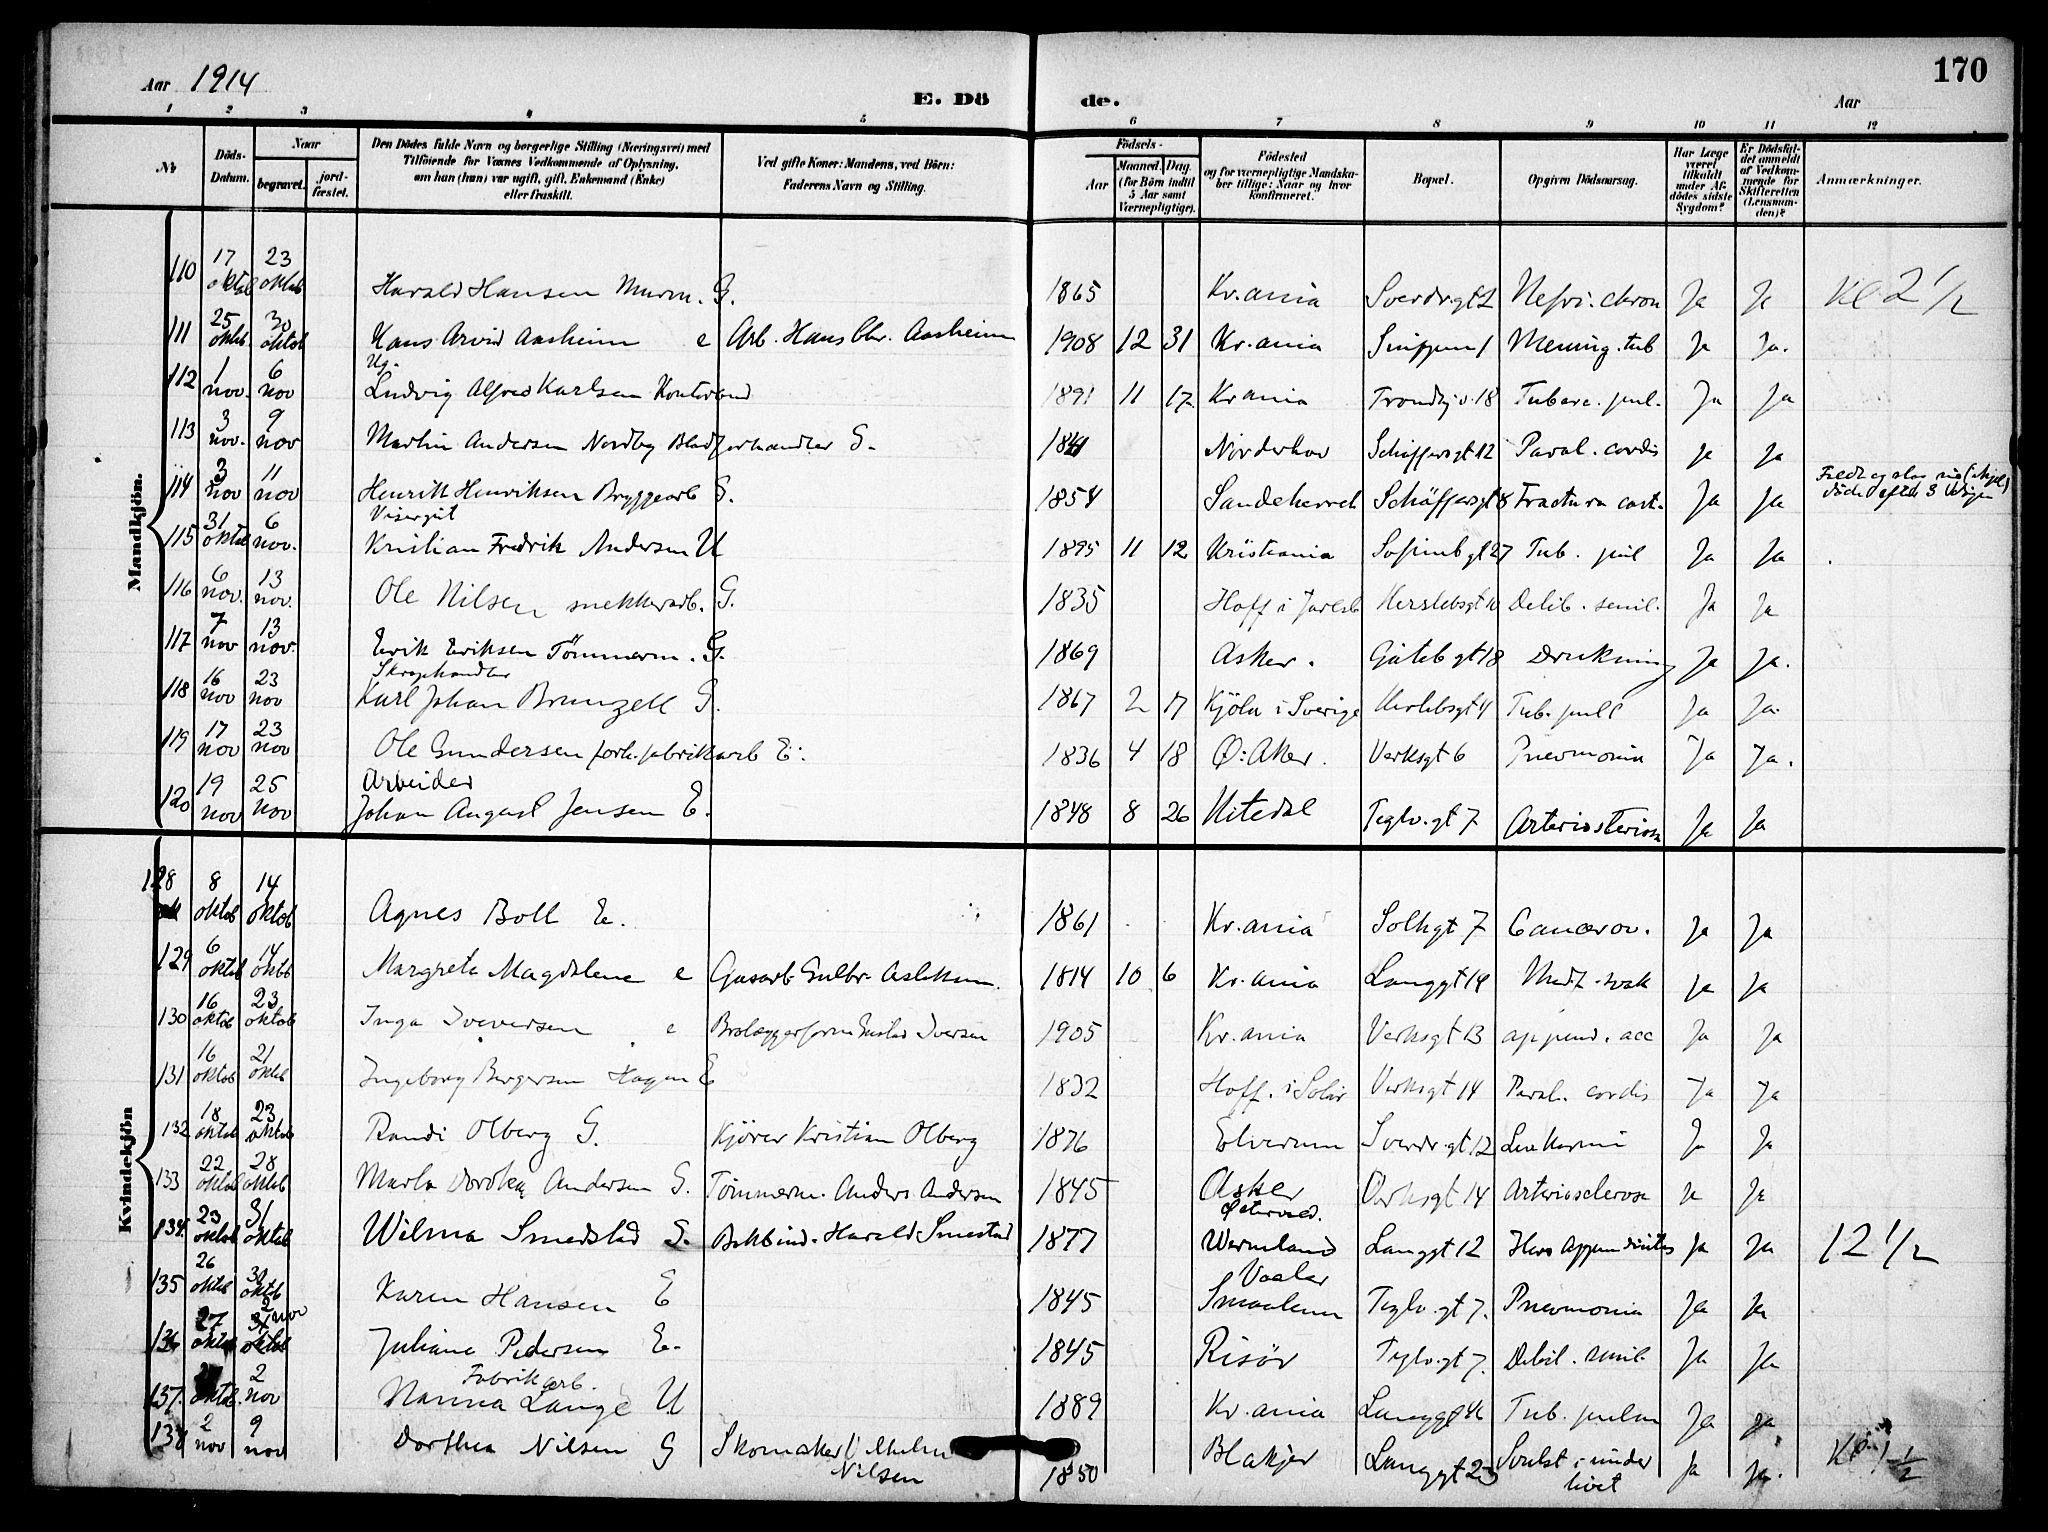 170
Aar 1914
E. Dö de.
Aar
1 2 3 4 5 6 7 8 9 10 11 12
No
Döds-Datum.
Naar
begravet.
jord-fæstet.
Den Dödes fulde Navn og borgerlige Stilling (Næringsvei) med
Tilföiende for Voxnes Vedkommende af Oplysning,
om han (hun) var ugift, gift, Enkemand (Enke)
eller fraskilt.
Ved gifte Koner: Mandens, ved Börn:
Faderens Navn og Stilling.
Födsels-
Aar
Maaned. Dag.
(for Börn indtil
5 Aar samt
Værnepligtige).
Födested
og for værnepligtige Mandska-
ber tillige: Naar og hvor
konfirmeret.
Bopæl.
Opgiven Dödsaarsag.
Har Læge
været
tilkaldt
under Af-
dödes sidste
Sygdom?
Er Dödsfal-
det anmeldt
af Vedkom-
mende for
Skifteretten
(Lensman-
den)?
Anmærkninger.
Mandkjön.
110 17 oktob 23 oktob Harald Hansen Murm. G. 1865 Kr.ania Sverdr.gt 2 Nefri. chron Ja Ja Kl 2 1/2
111 25 oktob 30 oktob Hans Arvid Aasheim e Arb. Hans Chr. Aasheim 1908 12 31 Kr.ania 1 Mening. tub Ja Ja.
112 1 nov. 6 nov Ug. Ludvig Alfred Karlsen Kontorbud 1891 11 17 Kr.ania Trondhj.v. 18 Tuberc. pul. Ja Ja
113 3 nov. 9 nov Martin Andersen Nordby Bladforhandler G. 1841 Norderhov Schäffersgt 12 Paral. cordis Ja Ja
114 3 nov 11 nov Henrik Henriksen Bryggearb G. 1854 Sandeherred Schäffersgt 8 Fractura cost. Ja Ja
115 31 oktob 6 nov. Visergut Kristian Fredrik Andersen U 1895 11 12 Kristiania Sofienbgt 27 Tub. pul Ja Ja
116 6 nov. 13 nov. Ole Nilsen snekkerarb. G. 1835 Hoff i Jarlsb Herslebsgt 10 Debil. senil. Ja Ja
117 7 nov 13 nov. Erik Eriksen Tömmerm. G. 1869 Asker. Götebgt 18 Drukning Ja Ja.
118 16 nov 23 nov Skraphandler Karl Johan Brunzell G. 1867 2 17 Kjöla i Sverige Herslebsgt 4 Tub. pull Ja Ja.
119 17 nov 23 nov Ole Gundersen forh. fabrikarb E. 1836 4 18 Ø. Aker. Verksgt 6 Pneumonia Ja Ja.
120 19 nov 25 nov Arbeider Johan August Jensen E. 1848 8 26 Nitedal Teglv.gt 7 Ja Ja
Kvindekjön
128 8 oktob 14 oktob Agnes Boll E. 1861 Kr.ania Solhgt 7 Cancer ov. Ja Ja
129 6 oktob 14 oktob Margrete Magdalene e Gasarb. Gulbr. Aslaksen. 1814 10 6 Kr.ania Langgt 14 Medf. svak Ja Ja
130 16 oktob 23 oktob Inga Iversen e Brolæggerform Gustav Iversen 1905 Kr.ania Verksgt 13 append. acc Ja Ja
131 16 oktob 21 oktob Ingeborg Bergersen Hagen E 1832 Hoff. i Solör Verksgt 14 Paral. cordis Ja Ja
132 18 oktob 23 oktob Randi Olberg G. Kjörer Kristian Olberg 1876 Elverum Sverdr.gt 12 Leukæmi Ja Ja
133 22 oktob 28 oktob Marta Dorthea Andersen G. Tömmerm. Anders Andersen 1845 Asker Verksgt 14 Arteriosclerose Ja Ja
134. 23 oktob 31 oktob Wilma Smedstad G. Bokbind. Harald Smestad 1877 Østervad. Wermland Langgt 12 Appendicites Ja Ja 12 1/2
135 26 oktob 31 oktob Karen Hansen E 1845 Vaaler Smaalenn Teglv.gt 7. Pneumonia Ja Ja
136 27 oktob 2 nov Juliane Pedersen E. 1845 Risör Teglv.gt 7. Debil. senil. Ja Ja
137. oktob. 2 nov Fabrikarb. Nanna Lange U 1889 Kr.ania Langgt 46 Tub. pulm Ja Ja
138 2 nov 9 nov Dorthea Nilsen G Skomaker Nilsen 1850 Blakjer Langgt 23 Svulst i underlivet Ja Ja. Kl 1 1/2